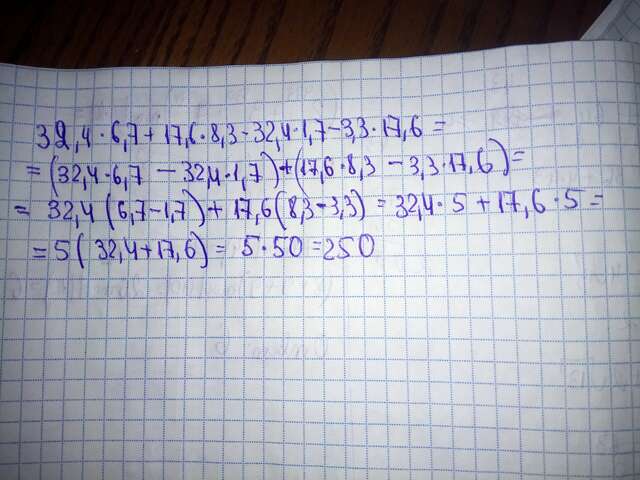 32,4 · 6,7 + 17,6 · 8,3 - 32,4 · 1,7 - 3,3 · 17,6 =
= (32,4 · 6,7 - 32,4 · 1,7) + (17,6 · 8,3 - 3,3 · 17,6) =
= 32,4 (6,7 - 1,7) + 17,6 (8,3 - 3,3) = 32,4 · 5 + 17,6 · 5 =
= 5 (32,4 + 17,6) = 5 · 50 = 250